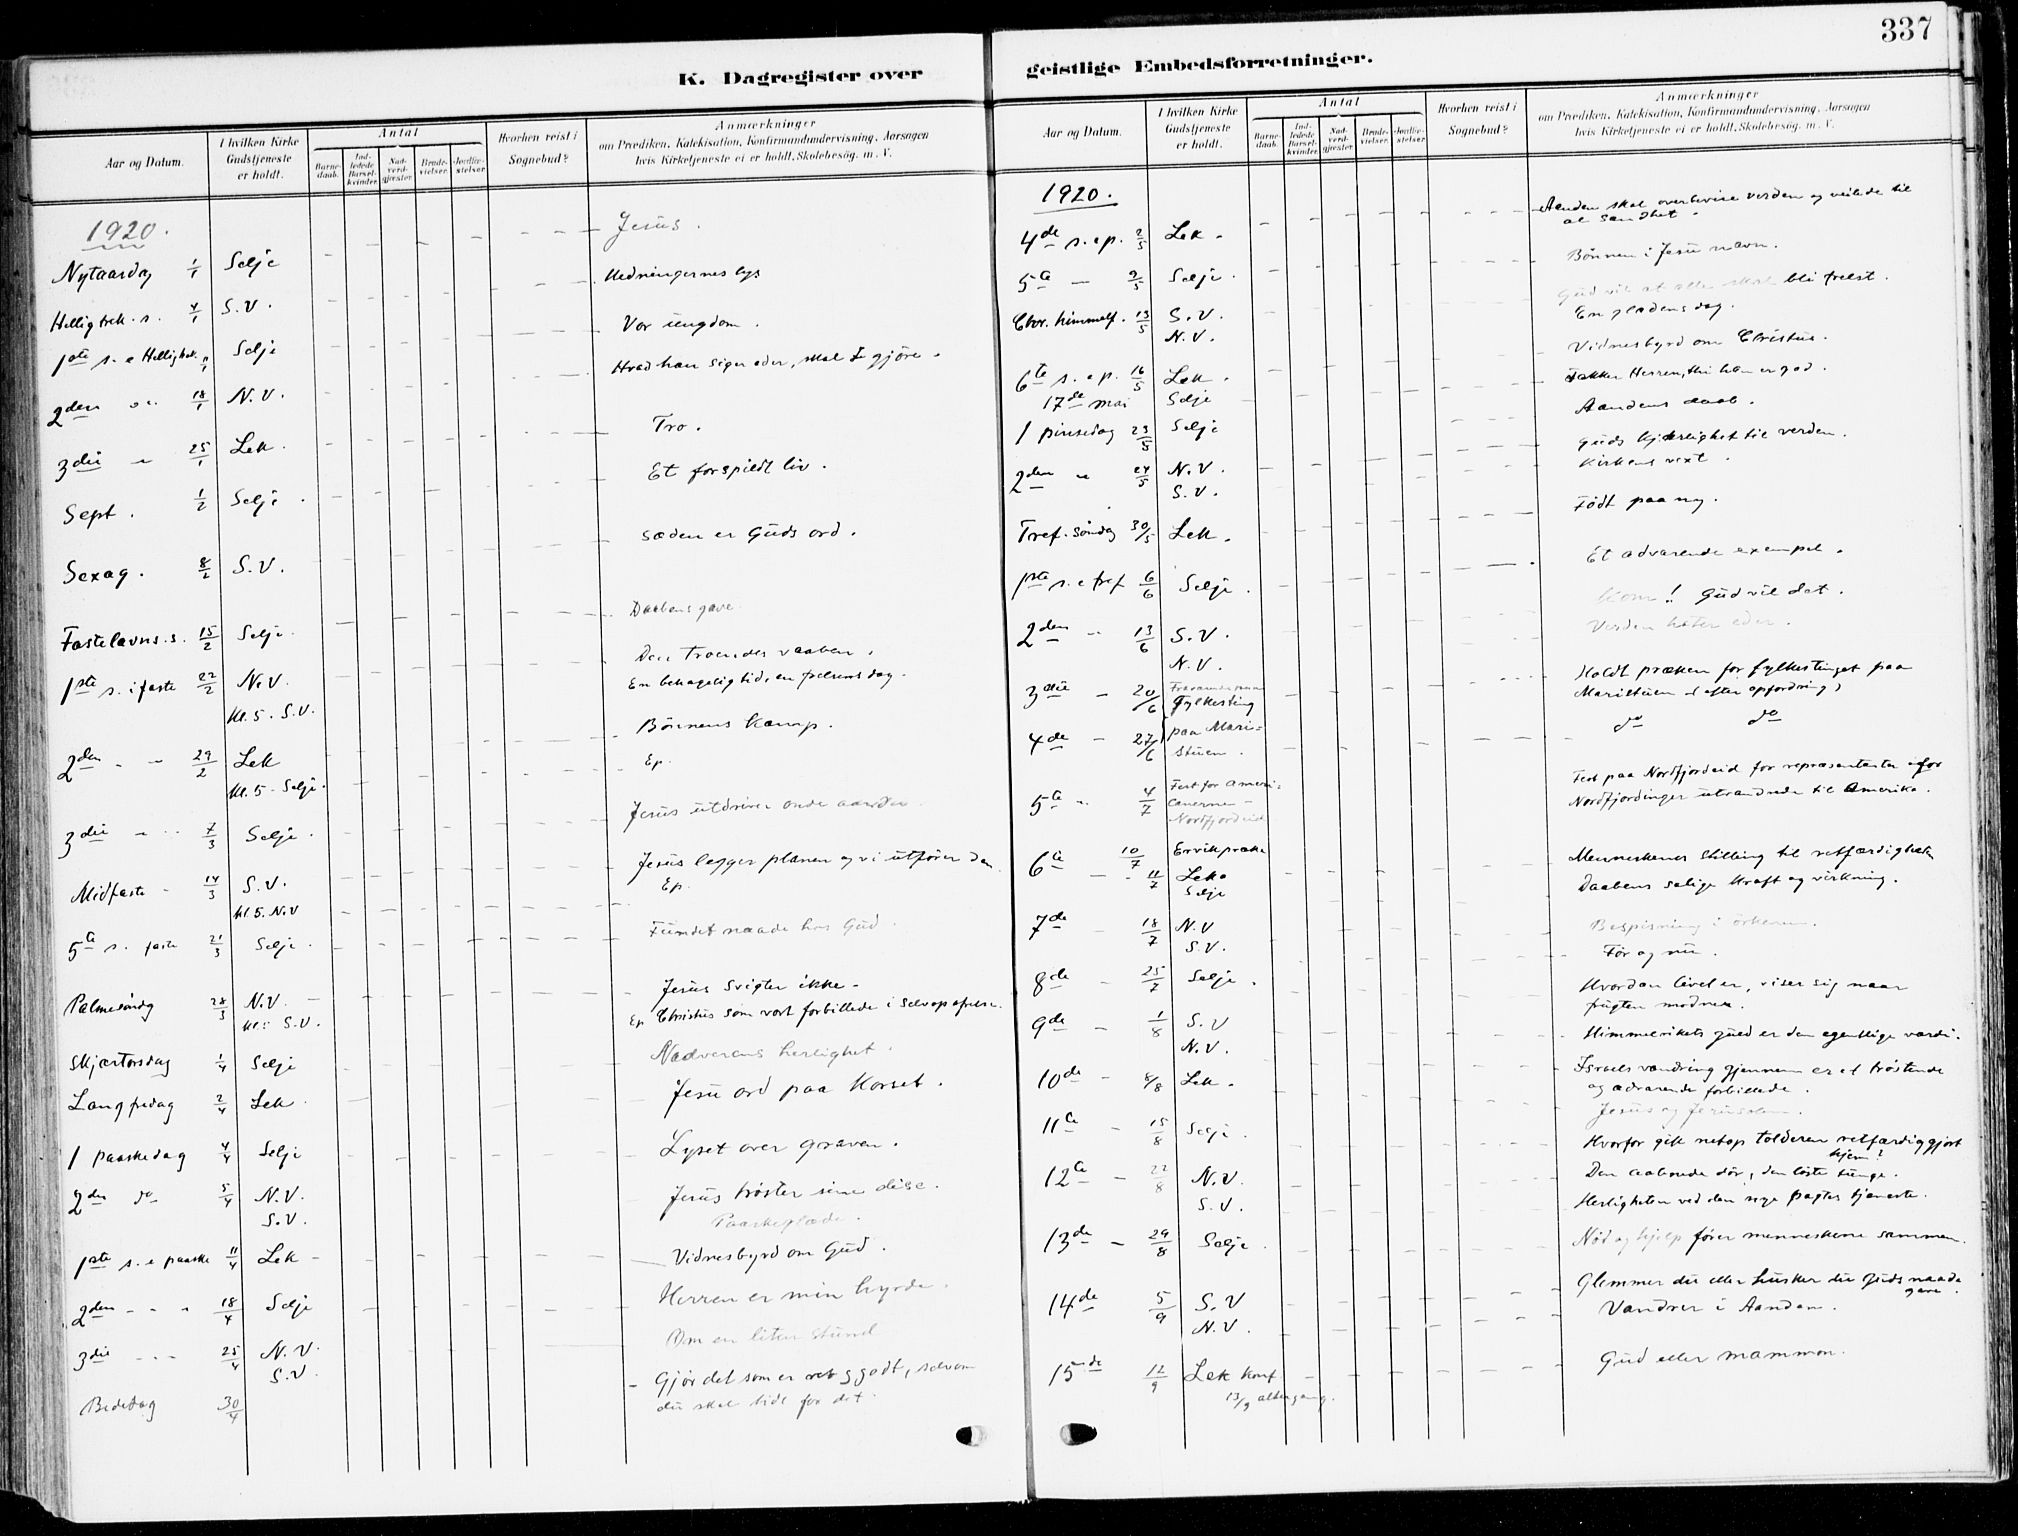 K. Dagregister over
Aar og Datum.
I hvilken Kirke Gudstjeneste er holdt.
Antal
Barne-daab.
Ind-ledede Barsel-kvinder.
Nad-verd-gjæster.
Brude-vielser.
Jordfæ-stelser.
Hvorhen reist i Sognebud?
Anmærkninger
om Prædiken, Katekisation, Konfirmandundervisning, Aarsagen
hvis Kirketjeneste ei er holdt, Skolebesög. m. V.
1920.
Nytaarsdag 1/1 Selje Jesus.
Helligtrek. s. 4/1 S.V. Hedningernes lys
1ste s. e Helligtrek. Selje Vor ungdom.
2den 18/1 N.V. Hvad han siger eder, skal I gjøre.
3die 25/1 Lek. Tro.
Sept. 1/2 Selje. Et forspildt liv.
Sexag. 8/2 S.V. Sæden er Guds ord.
Fastelavns.s. 15/2 Selje. Daabens gave.
1ste s. i faste 22/2 N.V. Den troendes vaaben.
Kl. 5. S.V. En behagelig tid, en frelsens dag.
2den 29/2 Lek Bönnens kamp.
Kl. 5 - Selje. Ep.
3die 7/3 Selje. Jesus utdriver onde aander.
Midfaste 14/3 S.V. Jesus legger planen og vi utfører den
kl 5. N.V Ep.
5te s. faste 21/3 Selje. Fundet naade hos Gud.
Palmesöndag 28/3 N.V. Jesus svigter ikke.
Kl. S.V. Ep Christus som vort forbillede i selvopofrelse.
Skjærtorsdag 1/4 Selje Nadverens herlighet.
Langfredag 2/4 Lek Jesu ord paa korset.
1 paaskedag 4/4 Selje Lyset over graven.
2den do 5/4 N.V. Jesus trøster sine disc.
S.V. Paaskeglæde.
1ste s. e paaske 11/4 Lek Vidnesbyrd om Gud.
2den 18/4 Selje Herren er min hyrde.
3die 25/4 N.V. Om en liten stund
S.V. Gjør det som er ret og godt, selv om
Bededag 30/4 du skal lide for det.
337
geistlige Embedsforretninger.
Aar og Datum.
I hvilken Kirke Gudstjeneste er holdt.
Antal
Barne-daab.
Ind-ledede Barsel-kvinder.
Nad-verd-gjæster.
Brude-vielser.
Jordfæ-stelser.
Hvorhen reist i Sognebud?
Anmærkninger
om Prædiken, Katekisation, Konfirmandundervisning, Aarsagen
hvis Kirketjeneste ei er holdt, Skolebesög. m. V.
1920.
Aanden skal overbevise verden og veilede til
4de s. e p. 2/5 Lek. al sandhet.
5te 9/5 Selje. Bönnen i Jesu navn.
Chr. himmelf. 13/5 S.V. Gud vil at alle skal bli frelst.
N.V. En glædens dag.
6te s. e p. 16/5 Lek. Vidnesbyrd om Christus.
17de mai Selje Takker Herren, thi han er god.
1 pinsedag 23/5 Selje Aandens daab.
2den 24/5 N.V. Guds kjærlighet til verden.
S.V. Kirkens vext.
Tref. söndag 30/5 Lek. Født paa ny.
1ste s. e tref 6/6 Selje. Et advarende exempel.
2den 13/6 S.V. Kom! Gud vil det.
N.V. Verden hater eder.
3die 20/6 Fylkesting Holdt præken for fylkestinget paa
Maristuen (efter opfordring)
4de 27/6 paa Mari-stuen. do do
5te 4/7 Fest for Ameri-canerne - Nordfjordeid Fest paa Nordfjordeid for repræsentanter for
Nordfjordinger utvandrede til Amerika.
6te 10/7 Ervikpræke
11/7 Lek. Menneskenes stilling til retfærdigheten
Selje Daabens salige kraft og virkning.
7de 18/7 N.V Bespisning i örkenen.
S.V. Før og nu.
8de 25/7 Selje. Hvordan livet er, viser sig naar
frugten modnes.
9de 1/8 S.V Himmerikets guld er den egentlige værdi.
N.V. Israels vandring gjennem er et trøstende
10de 8/8 Lek. og advarende forbillede.
11te 15/8 Selje. Jesus og Jerusalem.
12te 22/8 N.V. Hvorfor gik netop tolderen retfærdiggjort hjem?
Den aabnede dör, den löste tunge.
S.V. Herligheten ved den nye pagtes tjeneste.
13de 29/8 Selje. Nød og hjelp fører menneskene sammen.
14de 5/9 S.V Glemmer du eller husker du Guds naade gave.
N.V. Vandrer i Aanden.
15de 12/9 Lek konf Gud eller mammon.
13/9 altergang.